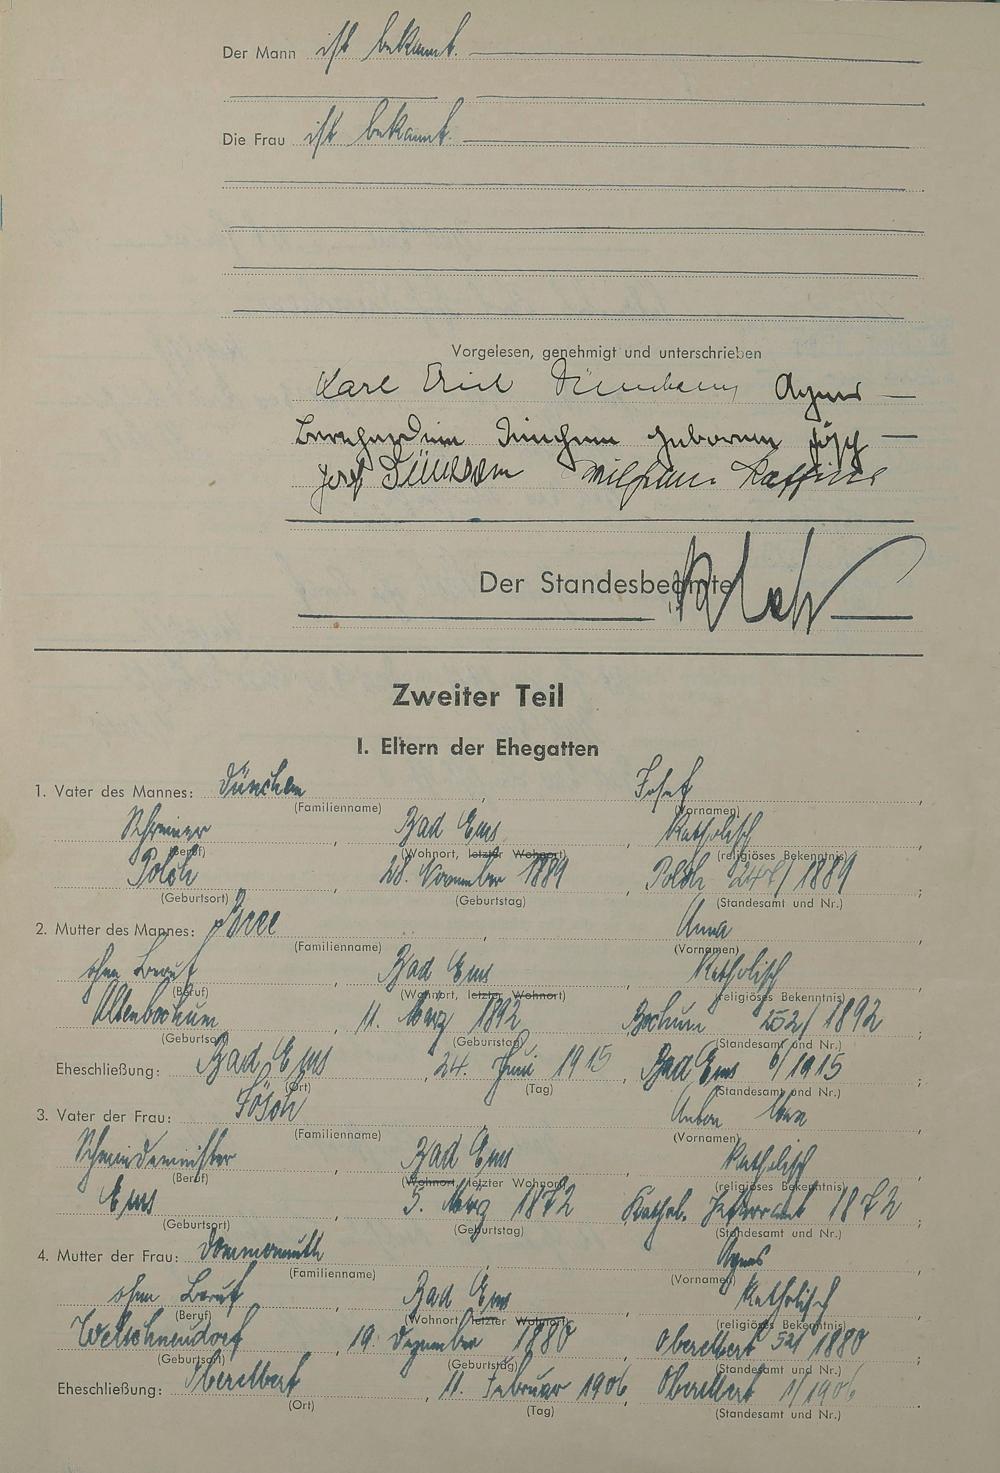 Der Mann ist bekannt.
Die Frau ist bekannt.
Vorgelesen, genehmigt und unterschrieben
Karl Erich Dünchem Agnes
Bernhardine Dünchem geborene Fösch
Josef Dünchem Wilhelm
Der Standesbeamte
Zweiter Teil
I. Eltern der Ehegatten
1. Vater des Mannes: Dünchem, Josef,
(Familienname) (Vornamen)
Schreiner, Bad Ems, Katholisch,
(Beruf) (Wohnort, letzter Wohnort) (religiöses Bekenntnis)
Polch, 28. November 1889, Polch 1889;
(Geburtsort) (Geburtstag) (Standesamt und Nr.)
2. Mutter des Mannes: Anna,
(Familienname) (Vornamen)
ohne Beruf, Bad Ems, Katholisch,
(Beruf) (Wohnort, letzter Wohnort) (religiöses Bekenntnis)
Altenbochum, 11. März 1892, Bochum 252/1892;
(Geburtsort) (Geburtstag) (Standesamt und Nr.)
Eheschließung: Bad Ems, 24. Juni 1915, Bad Ems 6/1915;
(Ort) (Tag) (Standesamt und Nr.)
3. Vater der Frau: Fösch, Anton,
(Familienname) (Vornamen)
Schmiedemeister, Bad Ems, Katholisch,
(Beruf) (Wohnort, letzter Wohnort) (religiöses Bekenntnis)
Ems, 5. März 1872, Kathol. Pfarramt 1872;
(Geburtsort) (Geburtstag) (Standesamt und Nr.)
4. Mutter der Frau: Dommermuth, Agnes,
(Familienname) (Vornamen)
ohne Beruf, Bad Ems, Katholisch,
(Beruf) (Wohnort, letzter Wohnort) (religiöses Bekenntnis)
Welschneudorf, 19. Dezember 1880, Oberelbert 52/1880;
(Geburtsort) (Geburtstag) (Standesamt und Nr.)
Eheschließung: Oberelbert, 11. Februar 1906, Oberelbert 1/1906.
(Ort) (Tag) (Standesamt und Nr.)